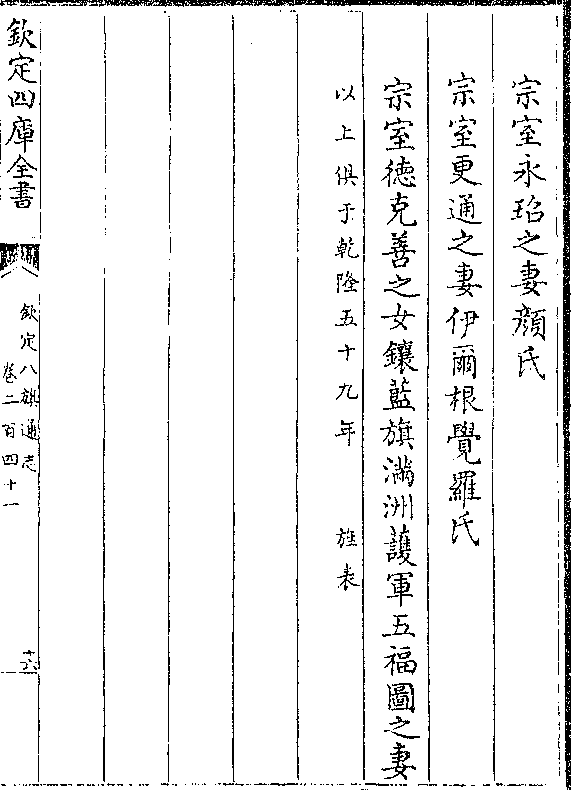 宗室永玿之妻顔氏
宗室更通之妻伊爾根覺羅氏
宗室德克善之女鑲藍旗滿洲護軍五福圖之妻
以上俱于乾隆五十九年　旌表
欽定四庫全書
欽定八旗通志
卷二百四十一
十六